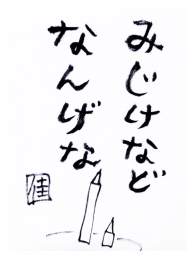 みじけなど
なんげな
佳